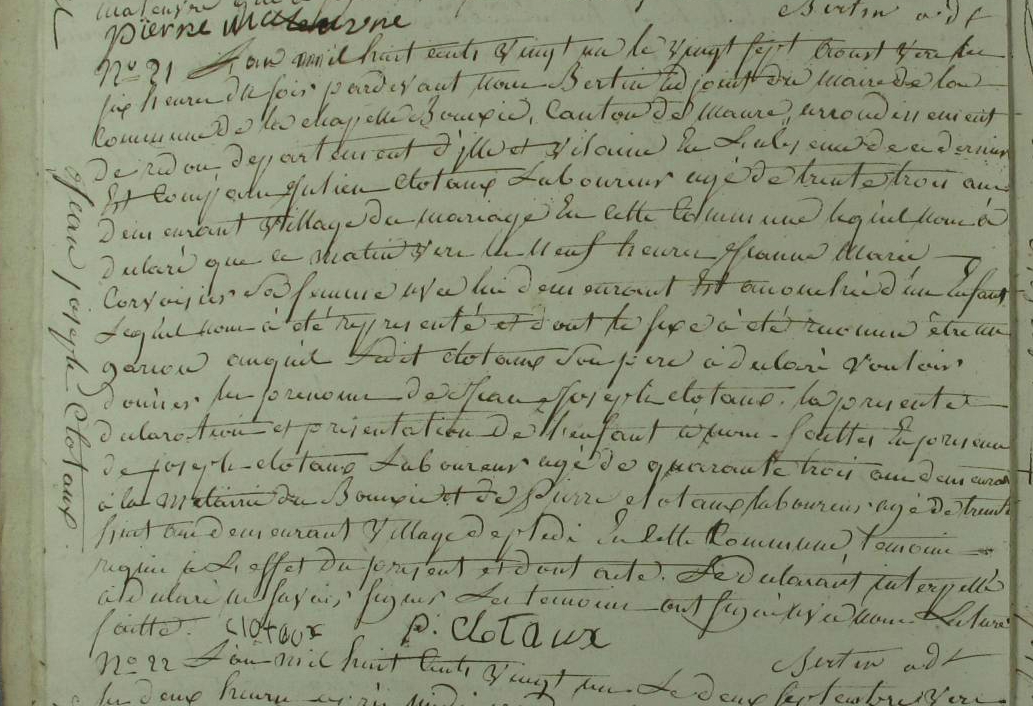 pierre
Bertin adt
Jean joseph Clotaux
No 21 L'an mil huit cents vingt un le vingt sept Aoust vers les
six heures du soir pardevant nous Bertin adjoint du maire de la
Commune de la chapelle Bouxic, Canton de Maure, arrondissement
de redon, departement d'ille et Vilaine En l'absence de ce dernier
Est Comparu Julien Clotaux Laboureur agé de trente trois ans
demeurant Village du mariage En cette Commune lequel nous à
declaré que ce matin vers les neuf heures Jeanne Marie
Corvaisier Sa femme avec lui demeurant Est accouchée d'un Enfant
Lequel nous à été representé et dont le sexe à été reconnu être un
garcon auquel Ledit clotaux Son pere à declaré vouloir
donner les prenoms de Jean Joseph clotaux. la presente
declaration et présentation de l'enfant à nous faittes En presence
de joseph clotaux Laboureur agé de quarante trois ans demeurant
à la Metairie du Bouxic et de Pierre clotaux laboureur agé de trente
huit ans demeurant Village de En cette Commune, temoins
requis à L'effet du present et dont acte. Le declarant interpellé
à declaré ne savoir signer Les temoins ont signé avec nous Lecture
faitte. clotaux p. clotaux
Bertin adt
No 22 L'an mil huit cents vingt un Le deux septembre vers
les deux heures après midi